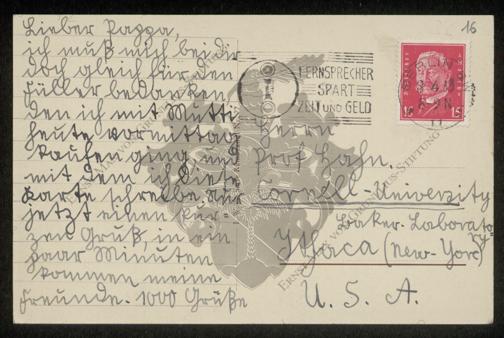 Lieber Pappa,
ich muß mich bei dir
doch gleich für den
Füller bedanken,
den ich mit Mutti
heute vormittag
kaufen ging und
mit dem ich diese
Karte schreibe, nur
jetzt einen kur-
zen Gruß, in ein
paar Minuten
kommen meine
Freunde. 1000 Grüße
16
FERNSPRECHER
SPART
ZEIT UND GELD
15 15
Herrn
Prof Hahn.
Cornell-Univerzity
Baker-Laboratory
Ithaca (New-York)
U. S. A.